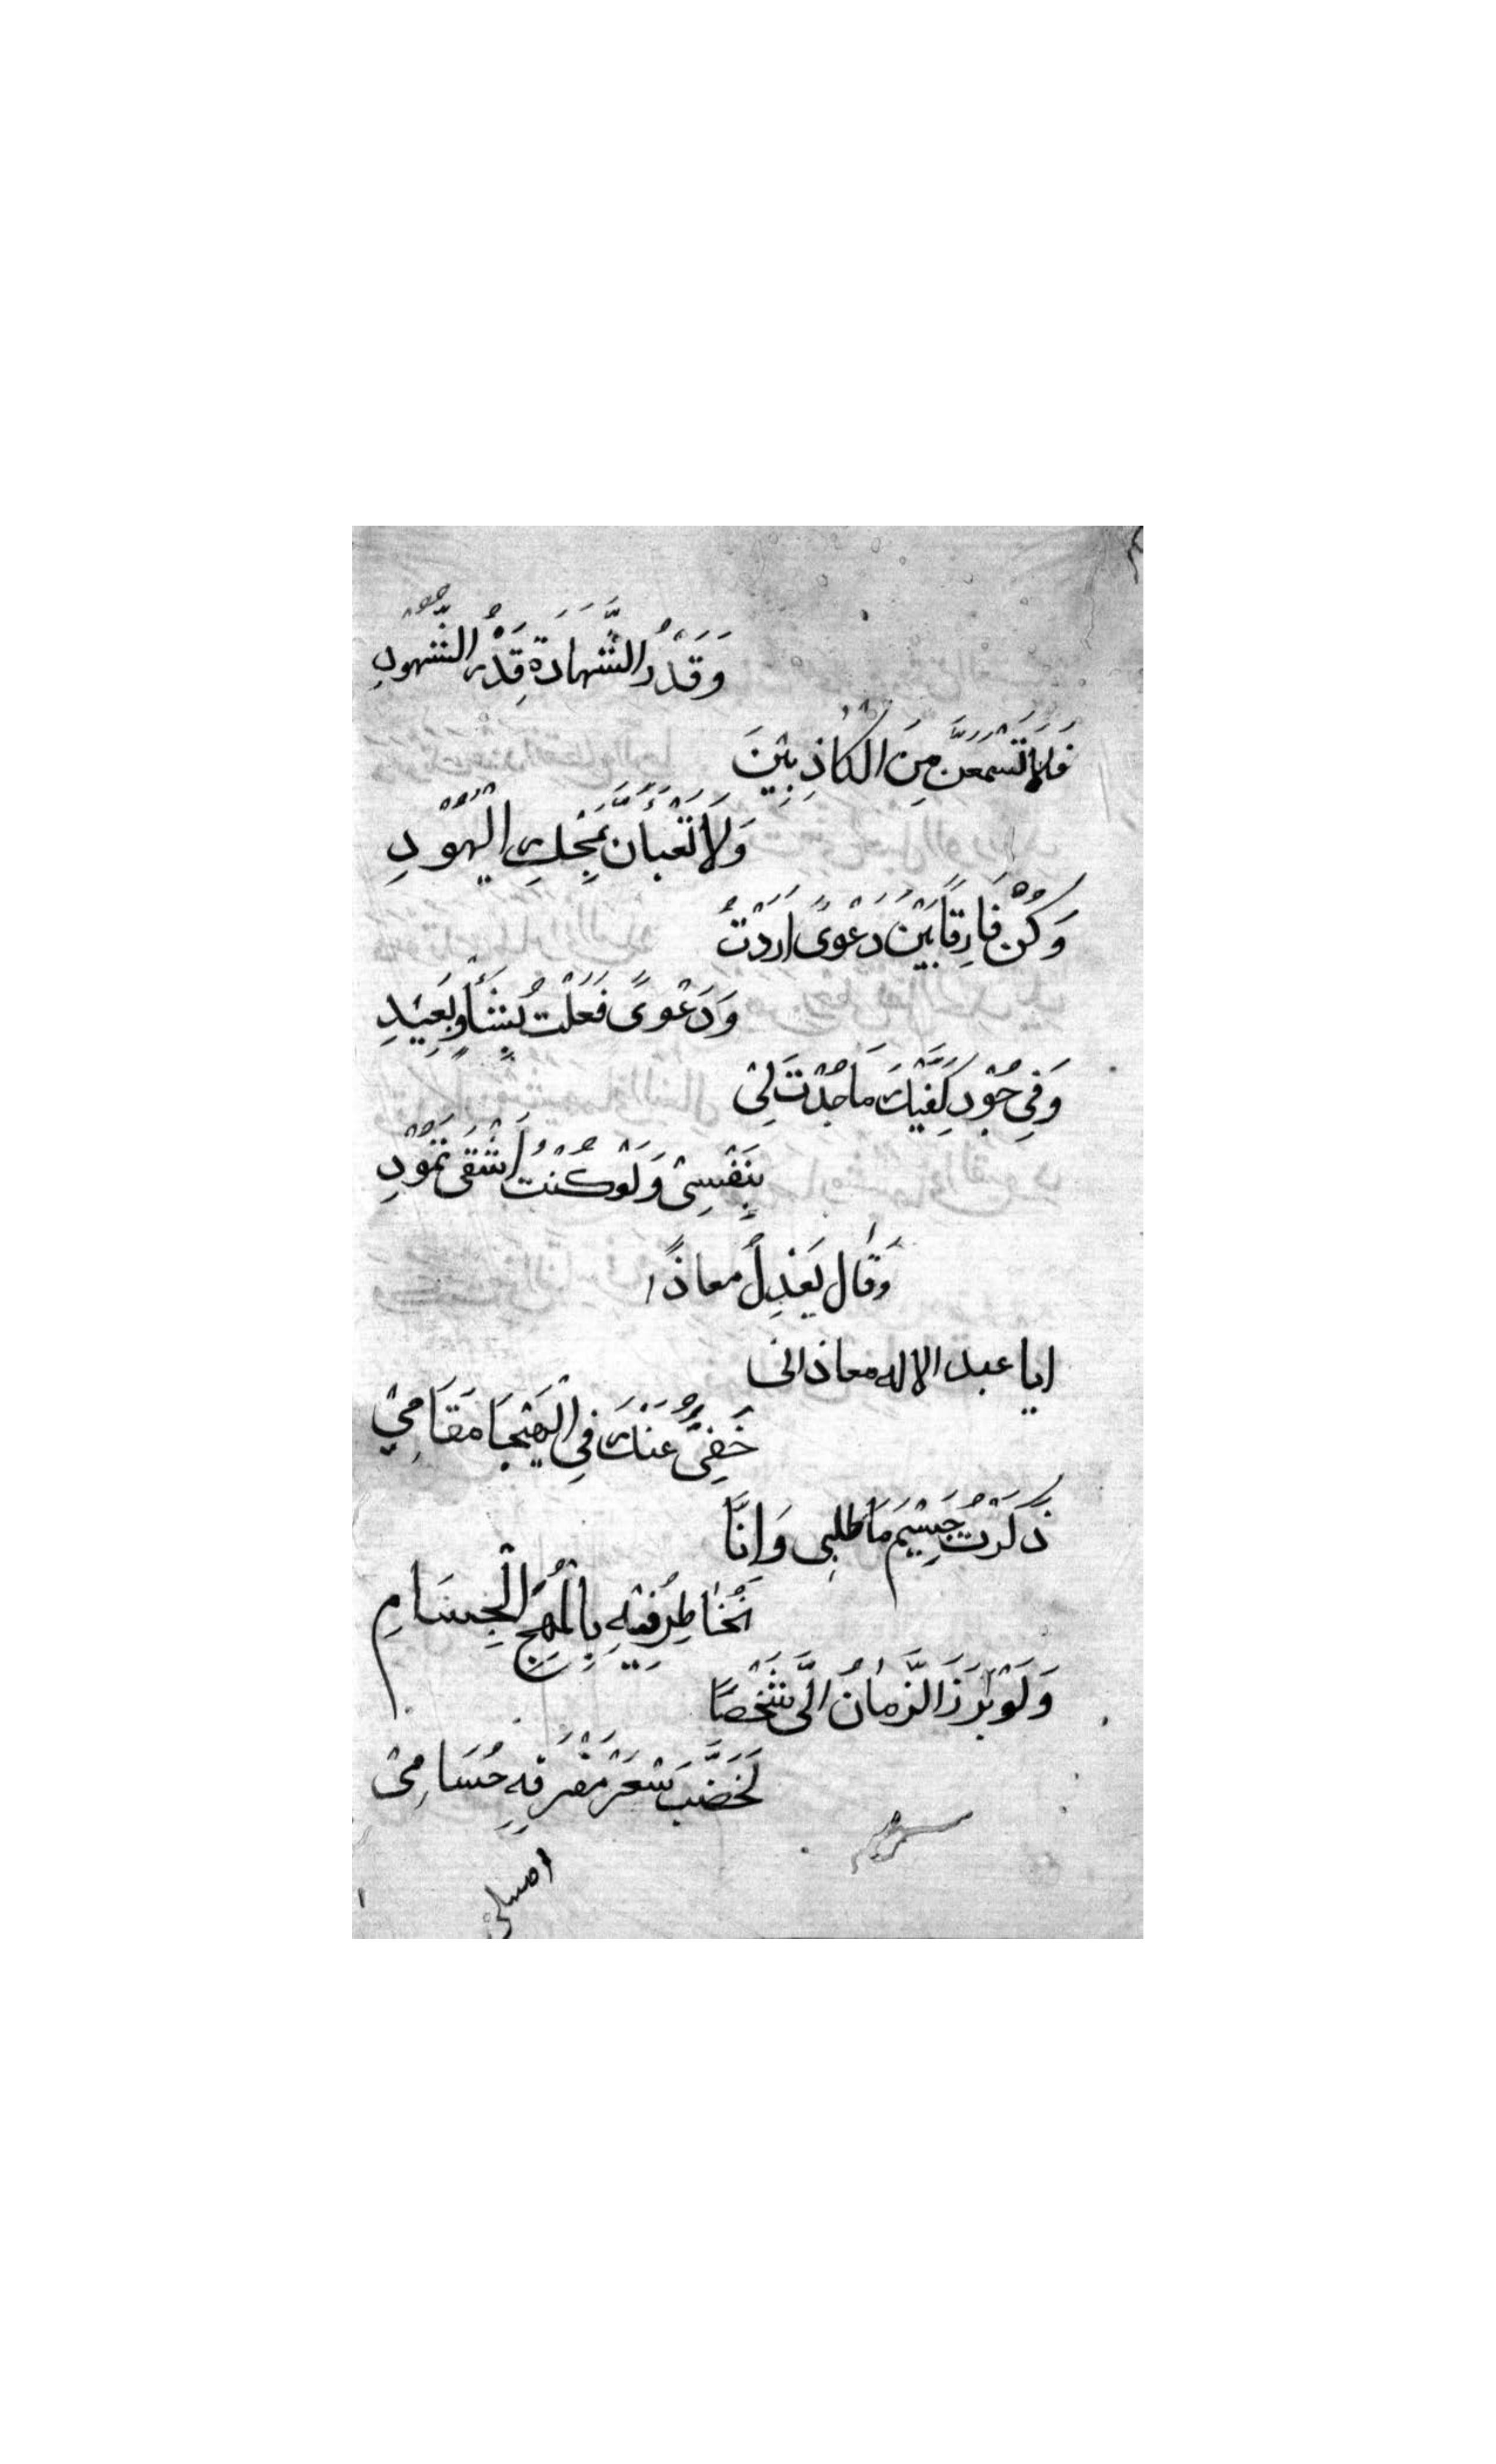 وَقَدْرُ الشَّهَادَةِ قَدْرُ الشُّهُودِ
فَلَا تَسْمَعَنَّ مِنَ الْكَاذِبِيْنَ
وَلَا تَعْبَأَنَّ بِمَحْكِ الْيَهُوْدِ
وَكُنْ فَارِقًا بَيْنَ دَعْوًى اَرَدْتُ
وَدَعْوًى فَعَلْتُ بِشَأْوٍ بَعِيْدِ
وَفِي جُوْدِ كَفَّيْكَ مَا جُدْتَ لِيْ
بِنَفْسِيْ وَلَوْ كُنْتُ اَشْقَى ثَمُوْدِ
وَقَالَ يَعْذِلُ مُعَاذًا
ايا عبد الاله معاذ انى
خَفِيٌّ عَنْكَ فِي الْهَيْجَا مَقَامِيْ
ذَكَرْتُ جَسِيْمَ مَا طلبِى وَاِنَّا
نُخَاطِرُ فِيْهِ بِالْمُهَجِ الْجِسَامِ
وَلَوْ بَرَزَ الزَّمَانُ اِلَيَّ شَخْصًا
لَخَضَّبَ شَعْرَ مَفْرَقِهِ حُسَامِيْ